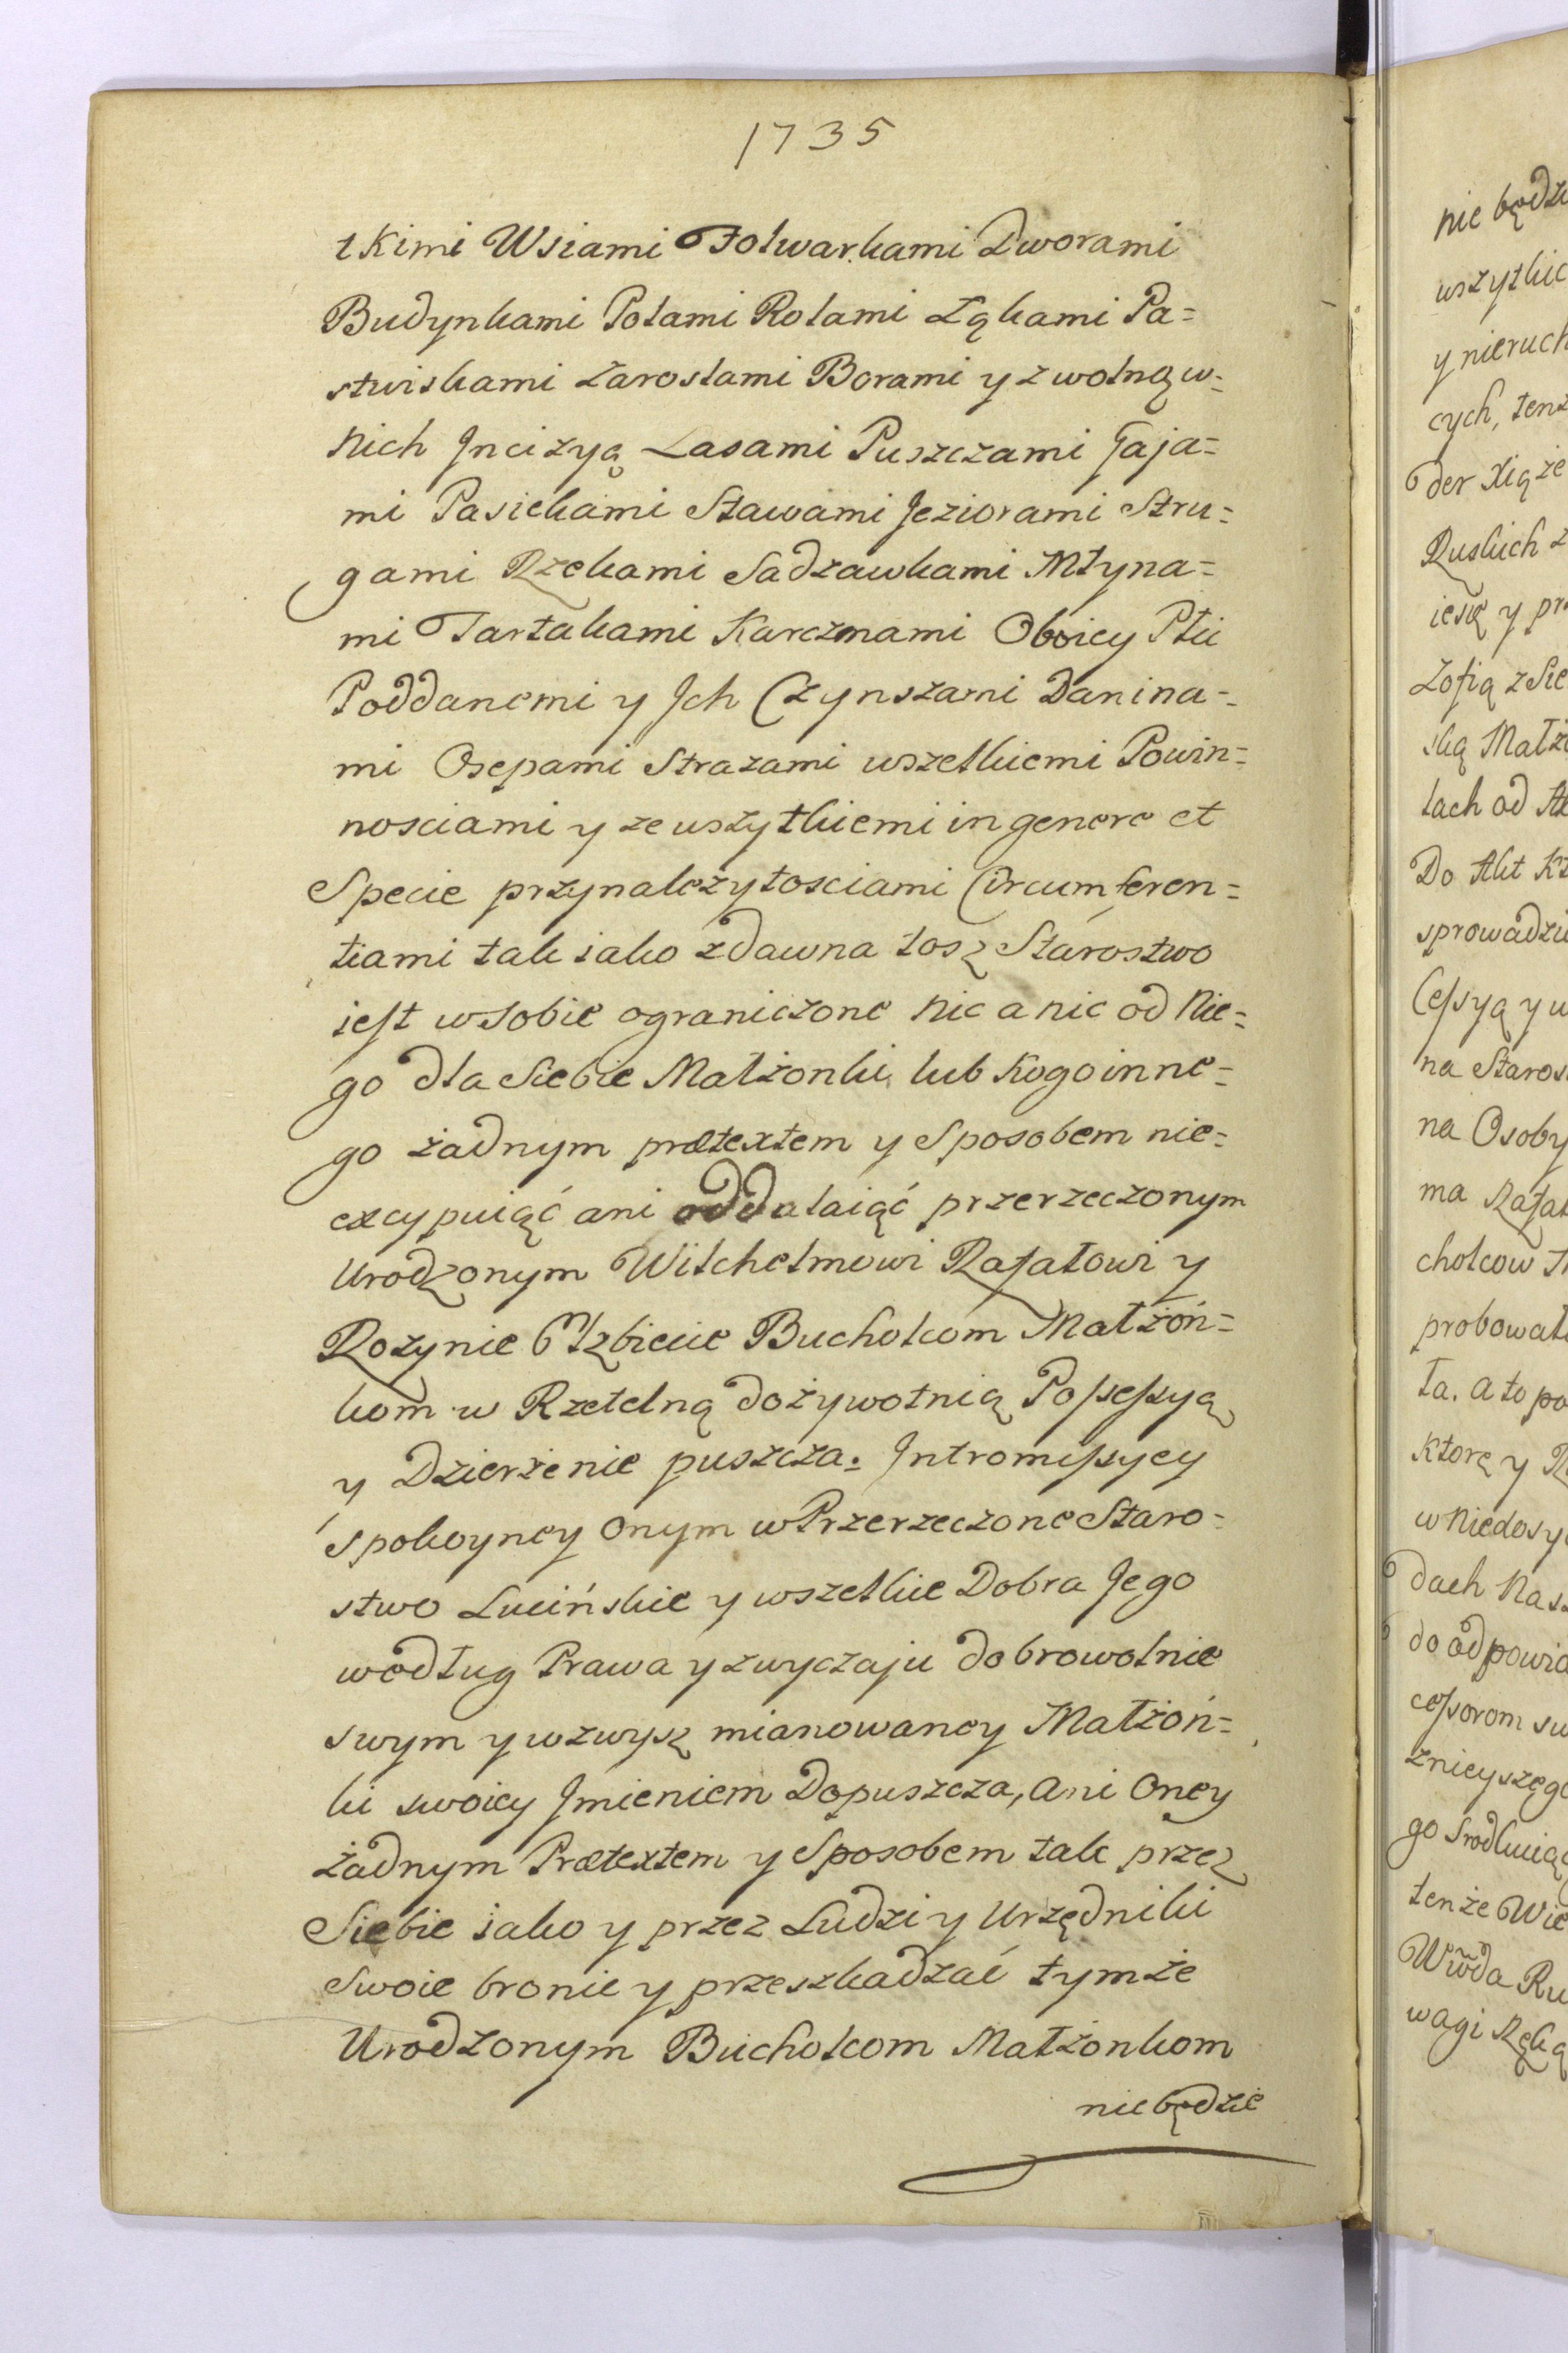 1735
tkimi Wsiami Folwarkami Dworami
Budynkami Polami Rolami Łąkami Pa=
stwiskami Zaroslami Borami y z wolną w=
nich Jncizyą Lasami Puszczami Gaja=
mi Pasiekami Stawami Jeziorami Stru=
gami Rzekami Sadzawkami Młyna=
mi Tartakami Karczmami Oboiey Płci
Poddanemi y Jch Czynszami Danina=
mi Osepami Strazami wszelkiemi Powin=
nosciami y ze wszytkiemi in genere et
Specie przynależytosciami Circumferen=
tiami tak iako zdawna tosz Starostwo
iest w sobie ograniczone nic a nic od Nie=
go dla Siebie Małżonki lub Kogo inne=
go żadnym prætextem y Sposobem nie=
excypuiąć ani oddalaiąć przerzeczonym
Urodzonym Wilchelmowi Rafałowi y
Rozynie Elzbiecie Bucholcom Małżoń=
kom w Rzetelną dożywotnią Possessyą
y Dzierżenie puszcza. Jntromissyey
spokoyney Onym w Przerzeczone Staro=
stwo Lucińskie y wszelkie Dobra Jego
według Prawa y zwyczaju dobrowolnie
swym y wzwysz mianowaney Małżoń=
ki swoiey Jmieniem Dopuszcza, ani Oney
żadnym Prætextem y Sposobem tak przez
Siebie iako y przez Ludzi y Urzędniki
Swoie bronic y przeszkadzać tymże
Urodzonym Bucholcom Małżonkom
nie będzie
nie będzie
wszytkie
y nieruch
cych, tenż
der Xiąże
Ruskich z
Zofią z Sie
ską Małżo
lach od
Do Akt
sprowadzi
Cessyą y w
na Staros
na Osoby
ma Rafał
cholcow
probował
ła. a to po
Ktorę y
w niedosy
dach Nas
do odpowia
cessorom sw
znieyszego
go
tenże Wie
Wwda Ru
wagi Ręką